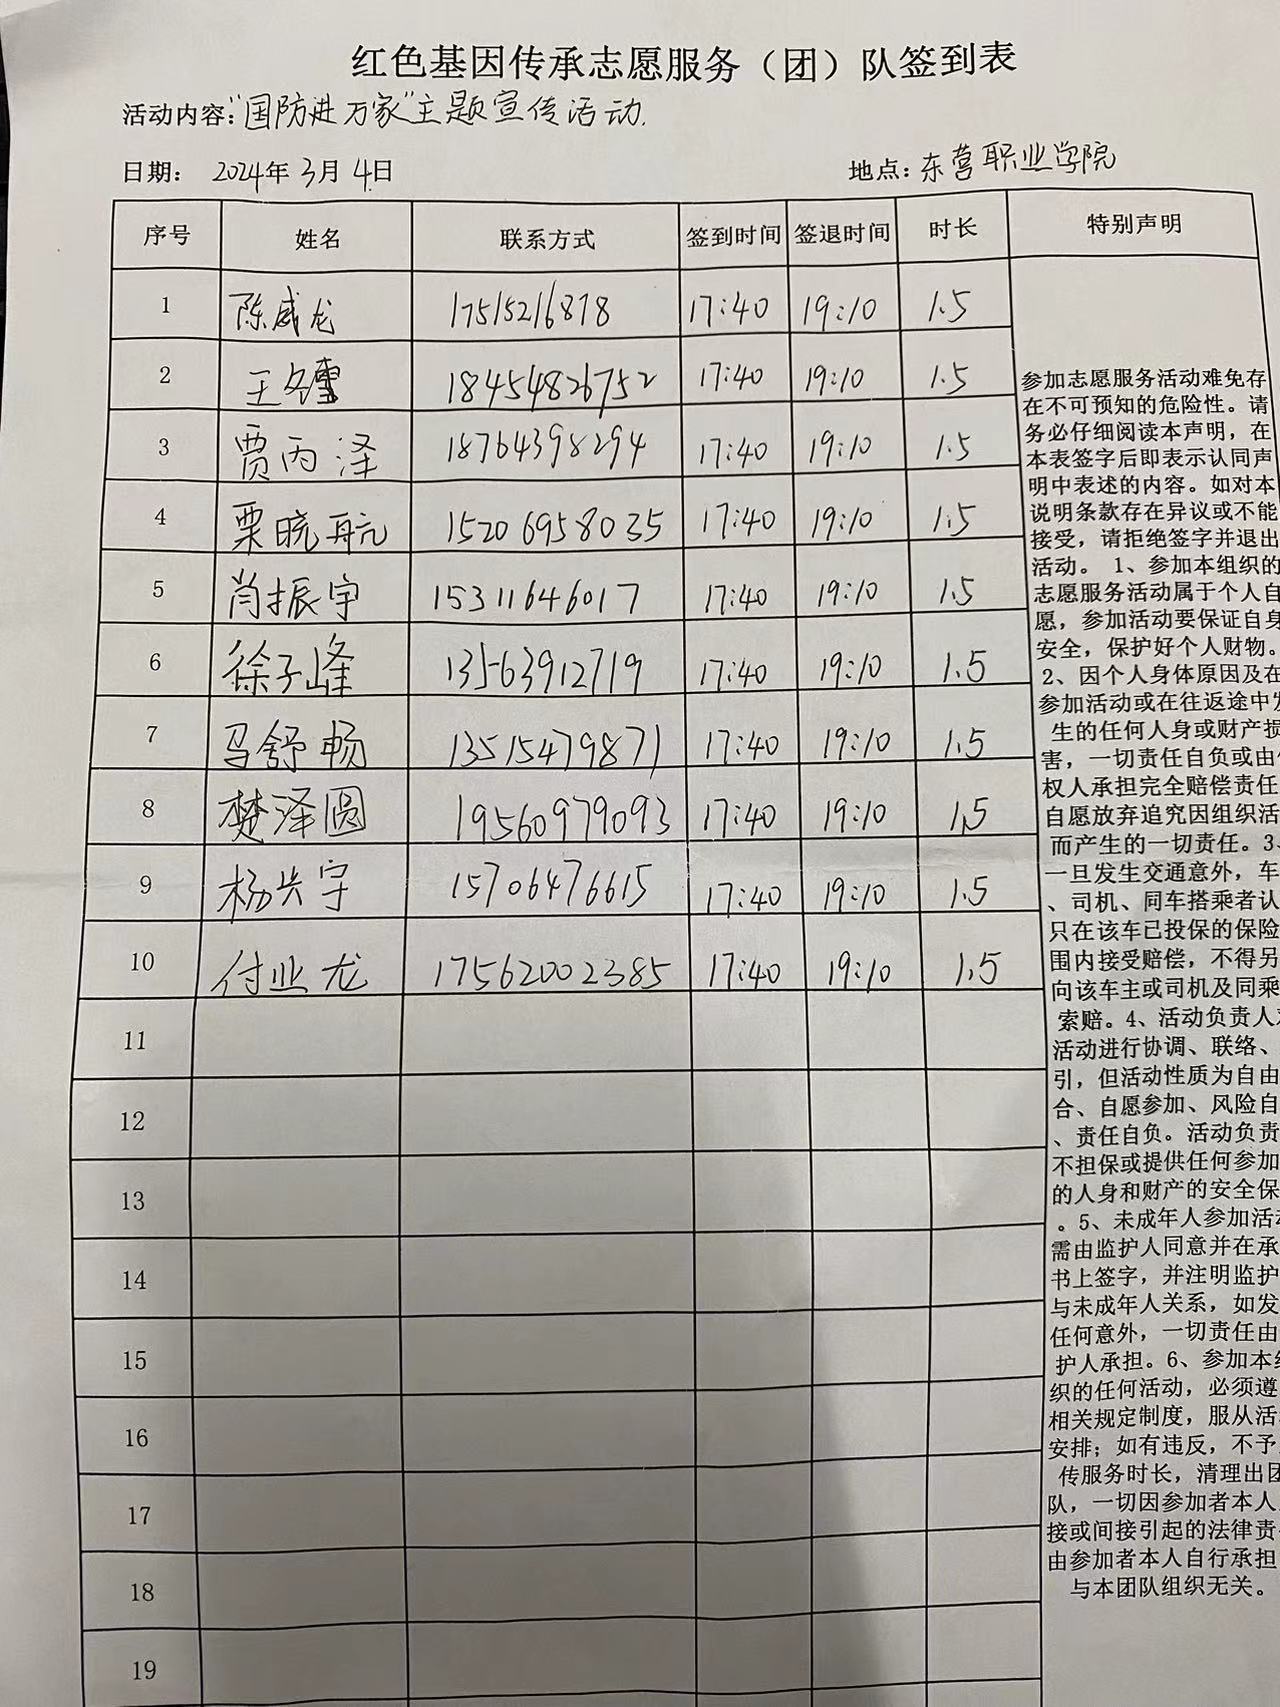 红色基因传承志愿服务（团）队签到表
活动内容：“国防进万家”主题宣传活动.
日期： 2024年 3月 4日 地点：东营职业学院
序号 姓名 联系方式 签到时间 签退时间 时长 特别声明
1 陈威龙 17515216878 17:40 19:10 1.5
2 王冬雪 18454826752 17:40 19:10 1.5
3 贾丙泽 18764398294 17:40 19:10 1.5
4 栗晓航 15206958035 17:40 19:10 1.5
5 肖振宇 15311646017 17:40 19:10 1.5
6 徐子峰 13563912719 17:40 19:10 1.5
7 马舒畅 13515479871 17:40 19:10 1.5
8 楚泽圆 19560979093 17:40 19:10 1.5
9 杨兴宇 15706476615 17:40 19:10 1.5
10 付业龙 17562002385 17:40 19:10 1.5
11
12
13
14
15
16
17
18
19
参加志愿服务活动难免存
在不可预知的危险性。请
务必仔细阅读本声明，在
本表签字后即表示认同声
明中表述的内容。如对本
说明条款存在异议或不能
接受，请拒绝签字并退出
活动。 1、参加本组织的
志愿服务活动属于个人自
愿，参加活动要保证自身
安全，保护好个人财物。
2、因个人身体原因及在
参加活动或在往返途中发
生的任何人身或财产损
害，一切责任自负或由
权人承担完全赔偿责任
自愿放弃追究因组织活
而产生的一切责任。3、
一旦发生交通意外，车
、司机、同车搭乘者认
只在该车已投保的保险
围内接受赔偿，不得另
向该车主或司机及同乘
索赔。4、活动负责人
活动进行协调、联络、
引，但活动性质为自由
合、自愿参加、风险自
、责任自负。活动负责
不担保或提供任何参加
的人身和财产的安全保
。5、未成年人参加活动
需由监护人同意并在承
书上签字，并注明监护
与未成年人关系，如发
任何意外，一切责任由
护人承担。6、参加本组
织的任何活动，必须遵
相关规定制度，服从活
安排；如有违反，不予
传服务时长，清理出团
队，一切因参加者本人
接或间接引起的法律责
由参加者本人自行承担
与本团队组织无关。